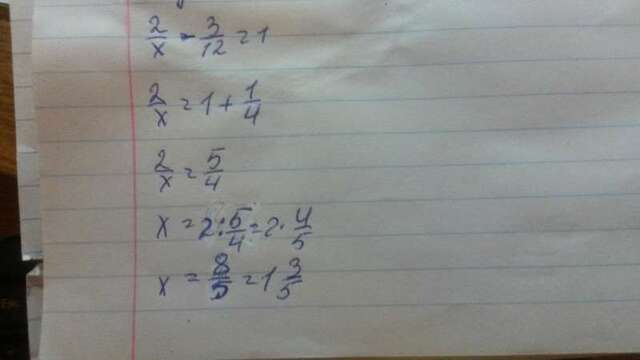 2/x - 3/12 = 1
2/x = 1 + 1/4
2/x = 5/4
x = 2 : 5/4 = 2 · 4/5
x = 8/5 = 1 3/5